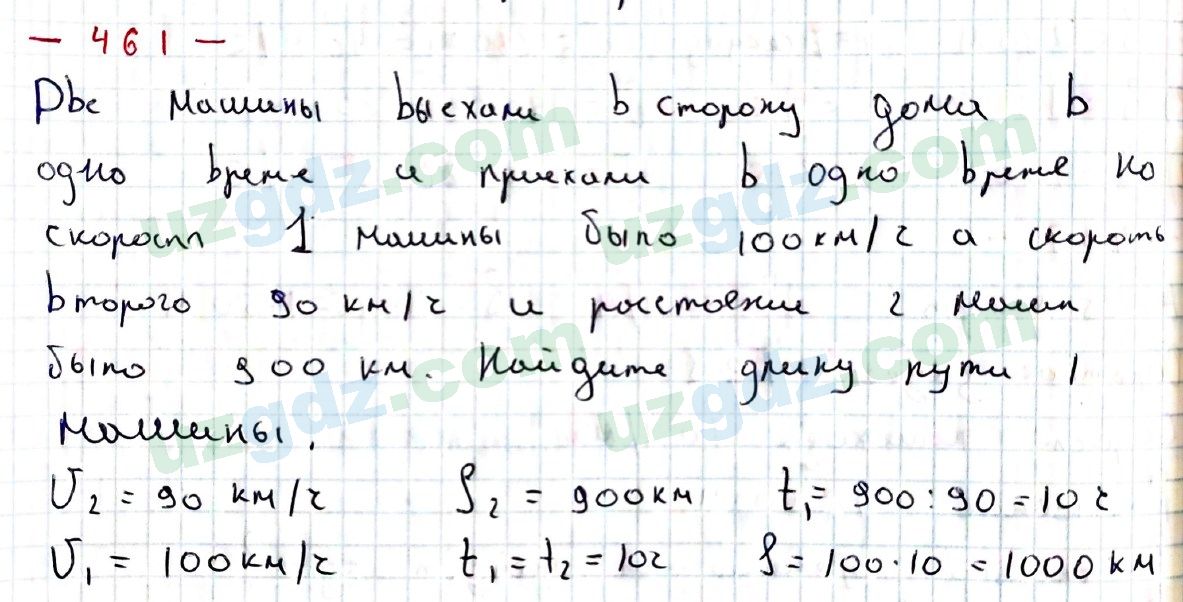 - 461 -
Две машины выехали в сторону дома в
одно время и приехали в одно время но
скорость 1 машины было 100 км/ч а скороть
второго 90 км/ч и росстояние 2 машин
было 900 км. Найдите длину пути 1
машины.
υ₂ = 90 км/ч S₂ = 900 км t₁ = 900 : 90 = 10 ч
υ₁ = 100 км/ч t₁ = t₂ = 10ч S = 100 · 10 = 1000 км
uzgdz.com
uzgdz.com
uzgdz.com
uzgdz.com